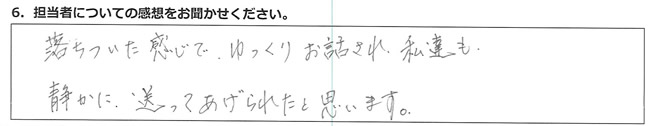 6．担当者についての感想をお聞かせください。
落ちついた感じで、ゆっくりお話され、私達も、
静かに、送ってあげられたと思います。